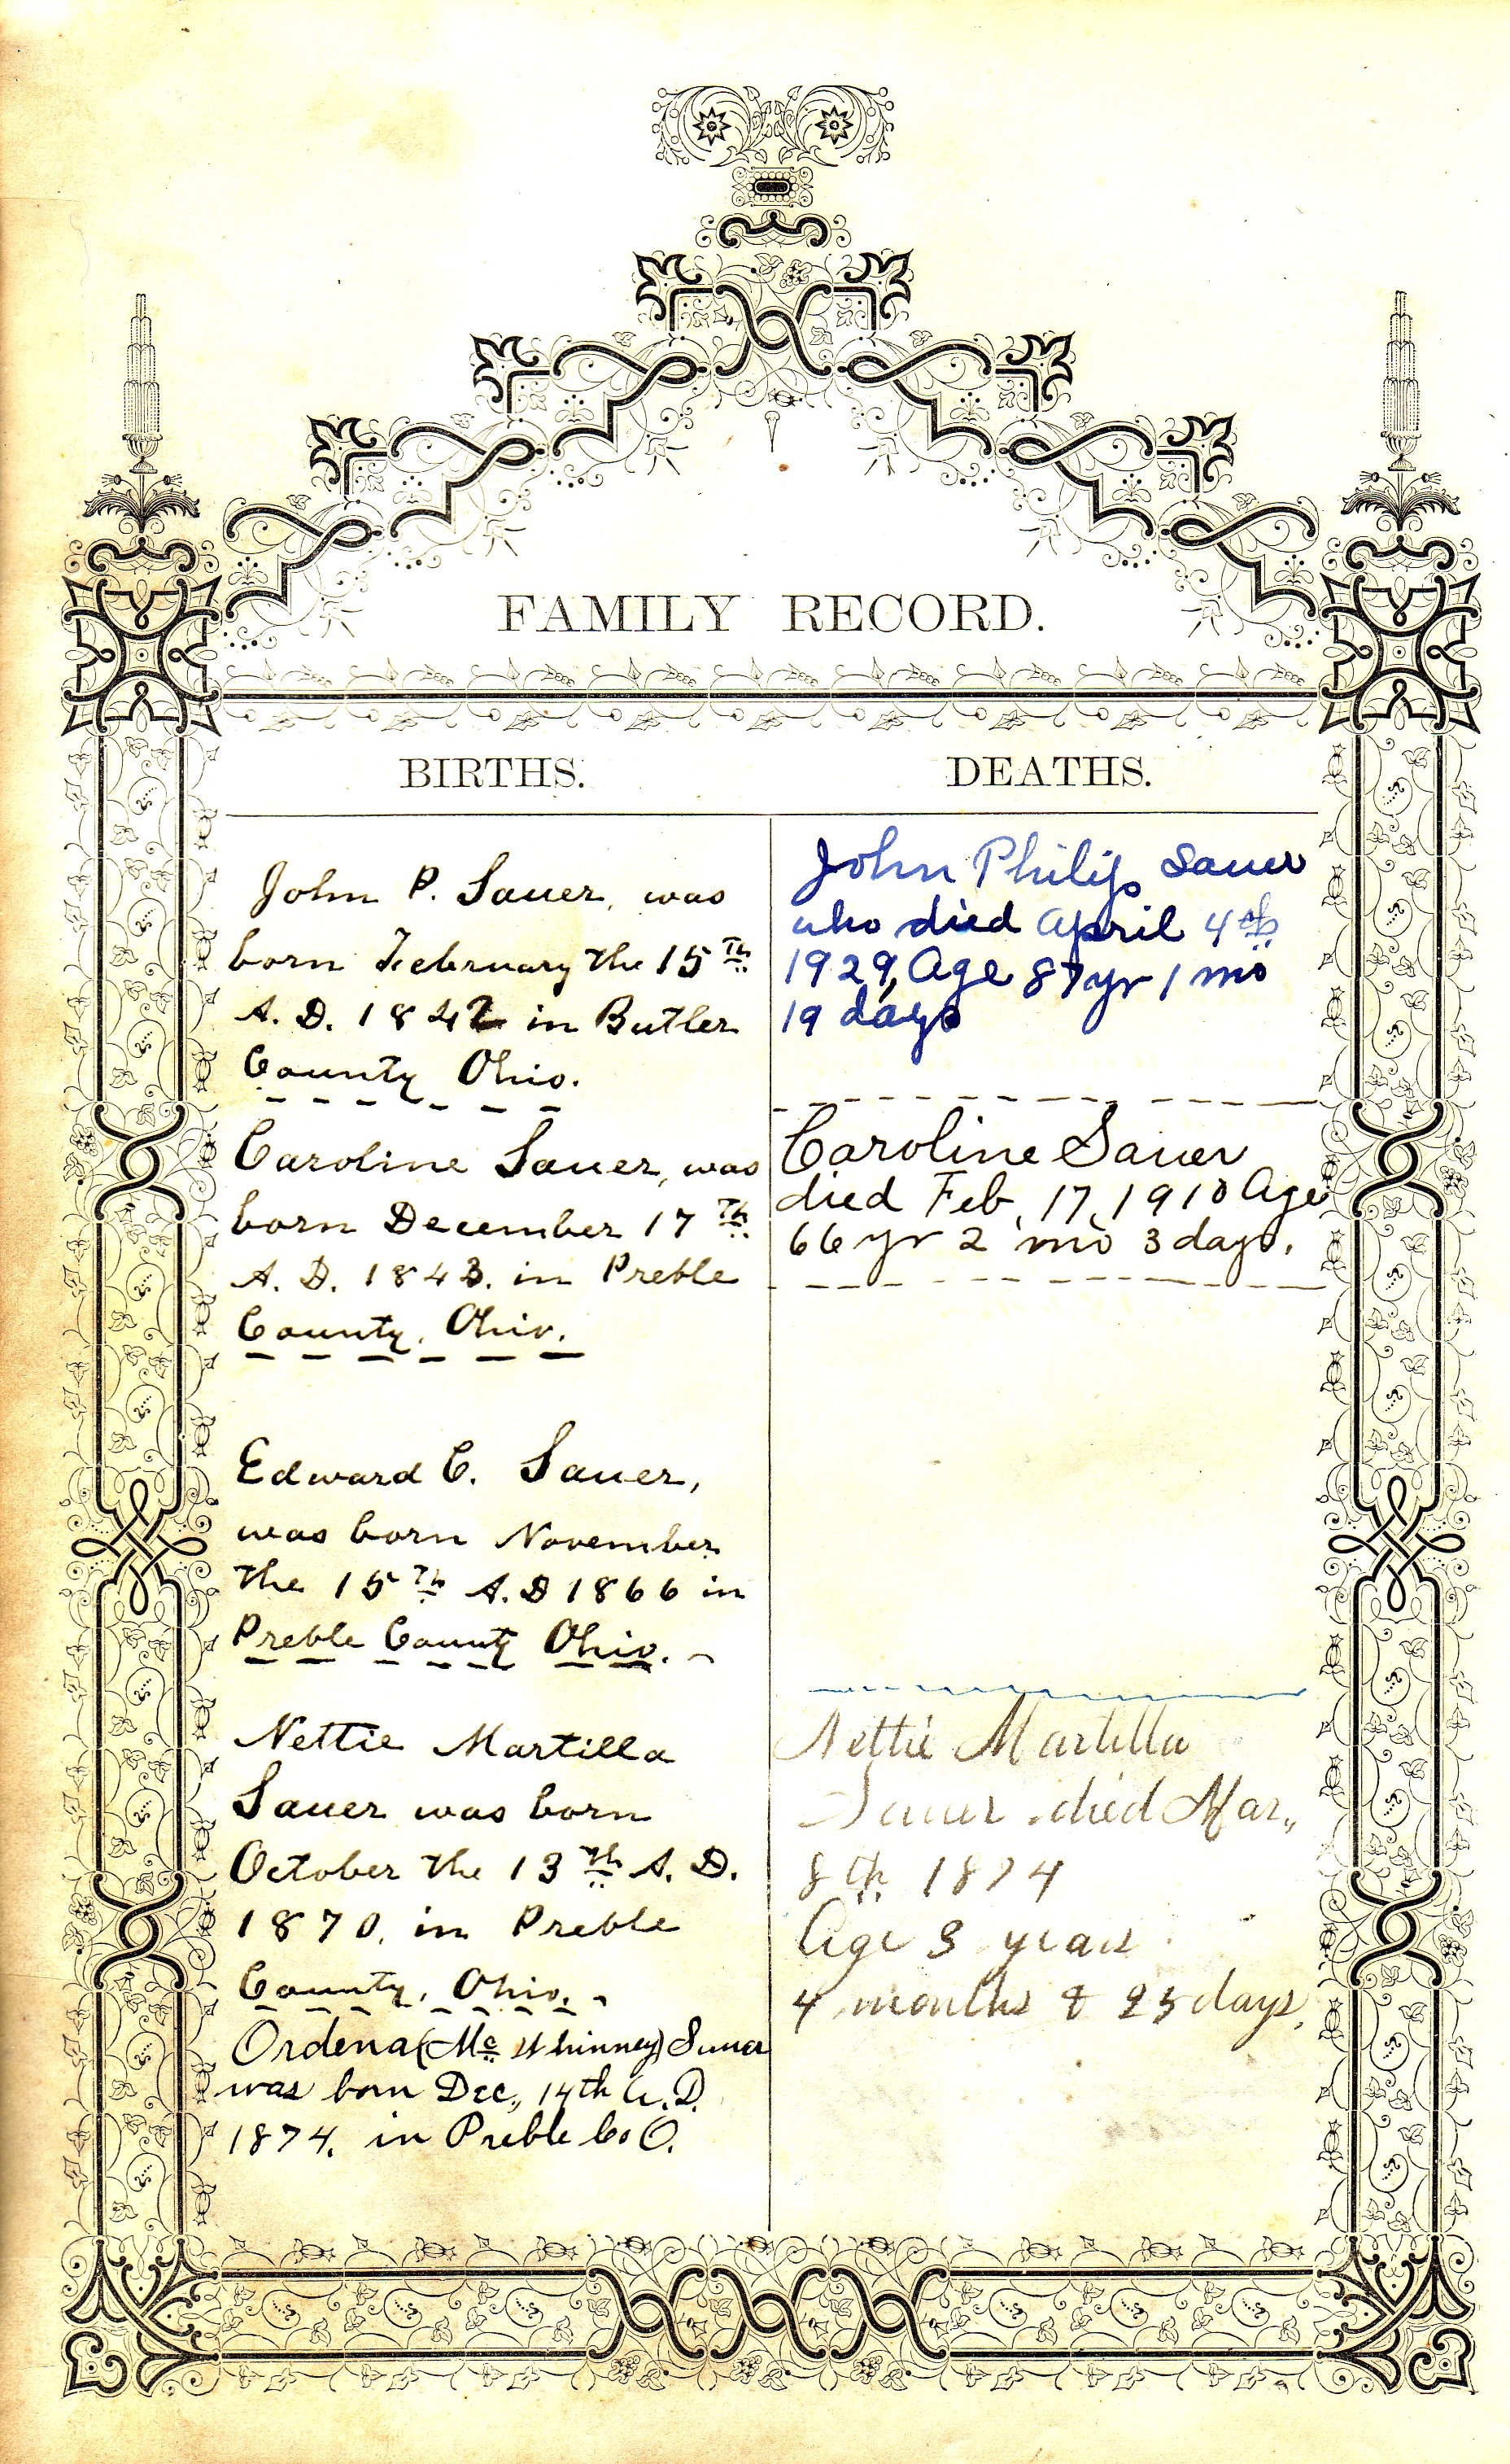 FAMILY RECORD.
BIRTHS.
John P. Sauer, was
born February the 15th
A. D. 1842 in Butler
County Ohio.
Caroline Sauer, was
born December 17th
A. D. 1843. in Preble
County, Ohio.
Edward C. Sauer,
was born November
the 15th A. D 1866 in
Preble County Ohio.
Nettie Martilla
Sauer was born
October the 13th A. D.
1870. in Preble
County, Ohio.
Ordena (Mc Whinney) Sauer
was born Dec., 14th A. D.
1874. in Preble Co O.
DEATHS.
John Philip Sauer
who died April 4th
1929, Age 87 yr 1 mo
19 days
Caroline Sauer
died Feb, 17, 1910 Age
66 yr 2 mo 3 days.
Nettie Martilla
Sauer died Mar.,
8th 1874
Age 3 years
4 months & 25 days,